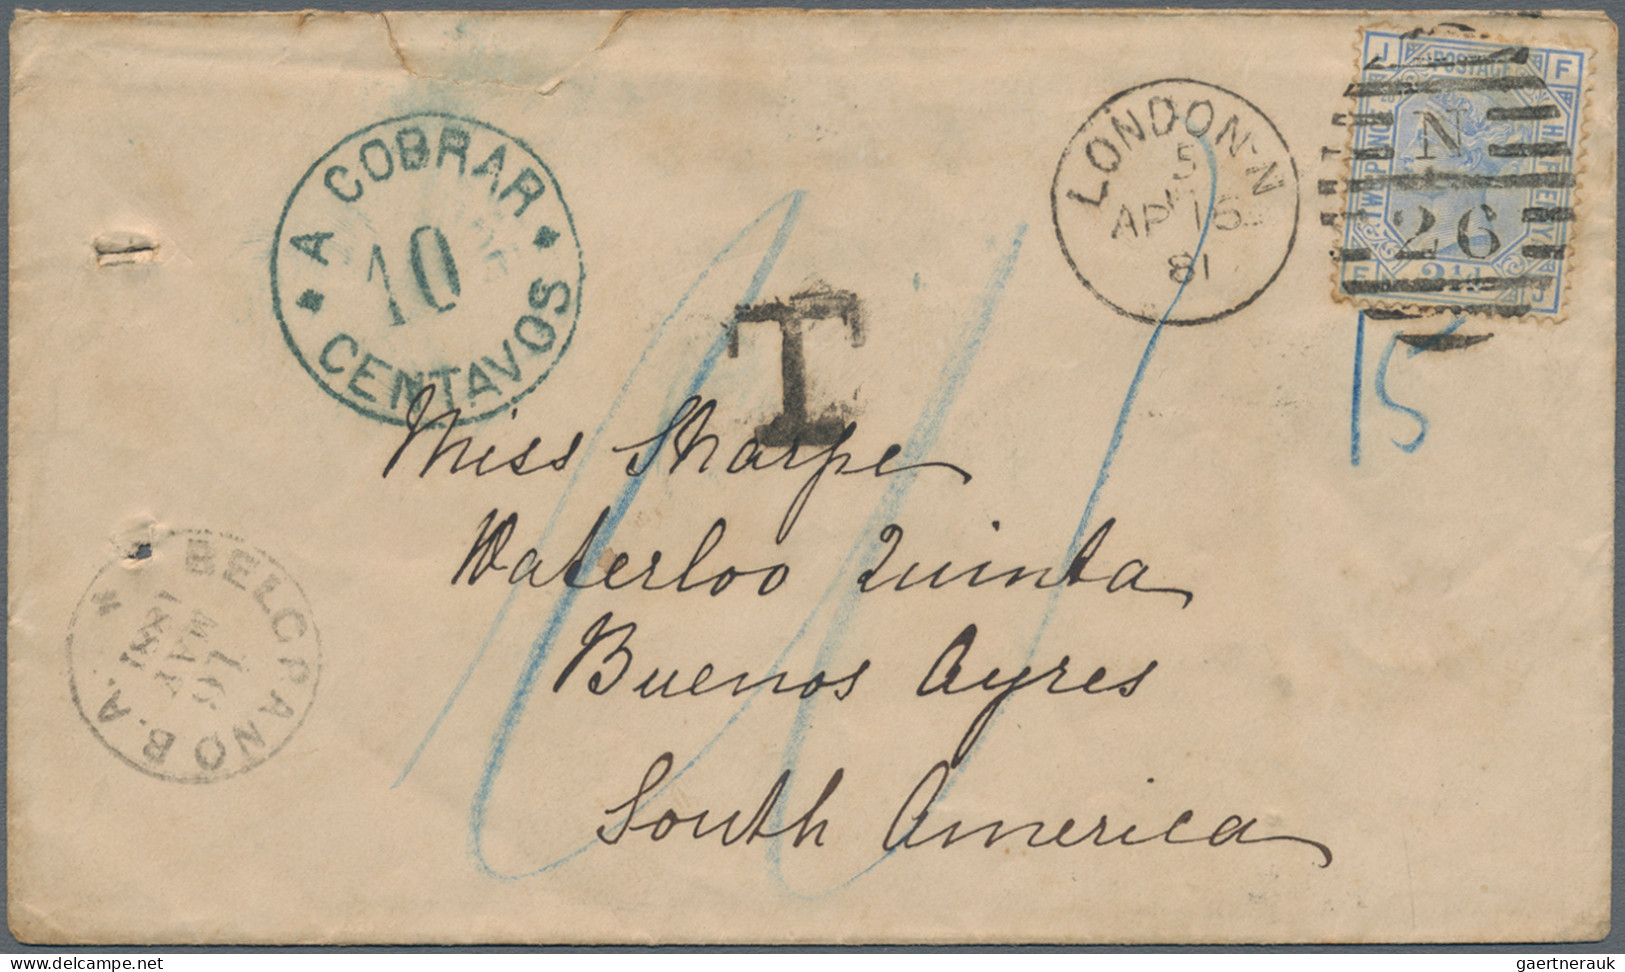 A COBRAR
10
CENTAVOS
LONDON·N
5
AP 16
81
J F
POSTAGE
TWO PENCE
HALFPENNY
N
26
F J
2½d
T
15
Miss Sharpe
Waterloo Quinta
Buenos Ayres
South America
BELGRANO B.A.
MAY
1881
www.delcampe.net
gaertnerauk